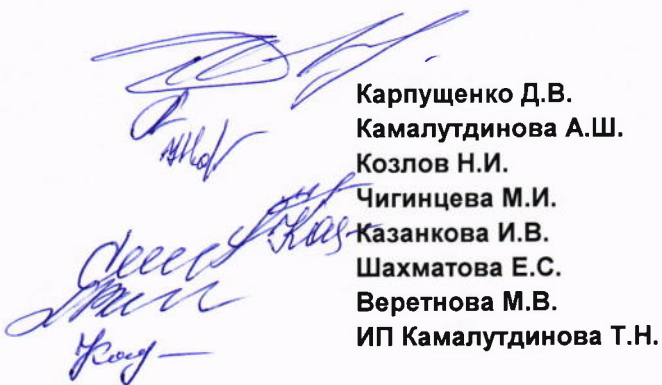 Карпущенко Д.В.
Камалутдинова А.Ш.
Козлов Н.И.
Чигинцева М.И.
Казанкова И.В.
Шахматова Е.С.
Веретнова М.В.
ИП Камалутдинова Т.Н.